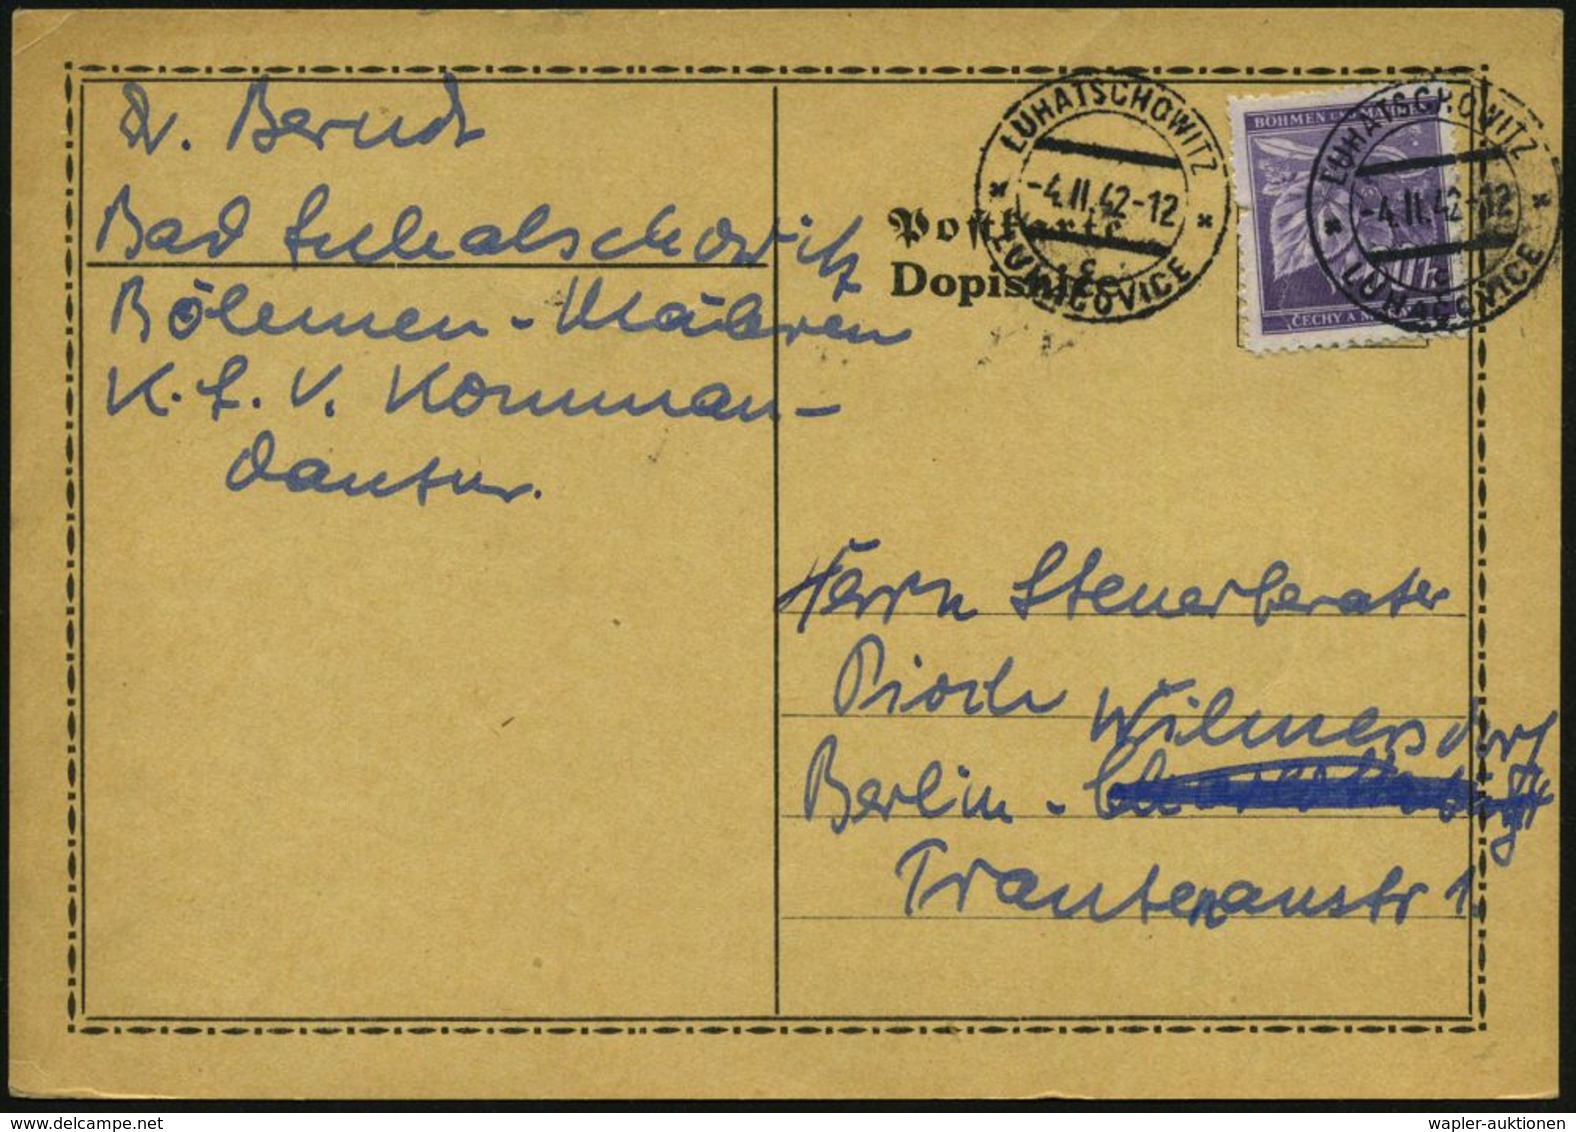 Dr. Berndt
Bad Luhatschowitz
Böhmen - Mähren
K. L. V. Komman-
dantur.
Postkarte
Dopisnice
LUHATSCHOWITZ
-4.II.42-12
c
LUHAČOVICE
BÖHMEN UND MÄHREN
ČECHY A MORAVA
LUHATSCHOWITZ
-4.II.42-12
c
LUHAČOVICE
Herrn Steuerberater
Pioch
Wilmersdorf
Berlin -
Trautenaustr 1.
wapler-auktionen